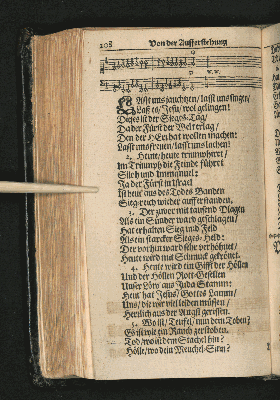 208 Von der Aufferstehung
LAsst uns jauchzen / lasst uns singen /
Lass es / Jesu / wol gelingen!
Dieses ist der Sieges-Tag /
Da der Fürst der Welt erlag /
Den der HErr hat wollen machen:
Lasst uns freuen / lasst uns lachen!
2. Heute / heute triumphiret /
Im Triumph die Feinde führet
Siloh und Immanuel:
Ja der Fürst in Israel
Ist heut aus des Todes Banden
Siegreich wieder aufferstanden.
3. Der zwar mit tausend Plagen
Als ein Sünder ward geschlagen /
Hat erhalten Sieg und Feld
Als ein starcker Sieges-Held:
Der vorhin ward sehr verhöhnet /
Heute wird mit Schmuck gekrönet.
4. Heute wird ein Gifft der Höllen
Und der Höllen Rott-Gesellen
Unser Löw aus Juda Stamm:
Heut hat Jesus / Gottes Lamm /
Uns / die wir viel leiden müssen /
Herrlich aus der Angst gerissen.
5. Wo ist / Teufel / nun dein Toben?
Es ist wie ein Rauch zerstoben.
Tod / wo ist dein Stachel hin?
Hölle / wo dein Meuchel-Sinn?